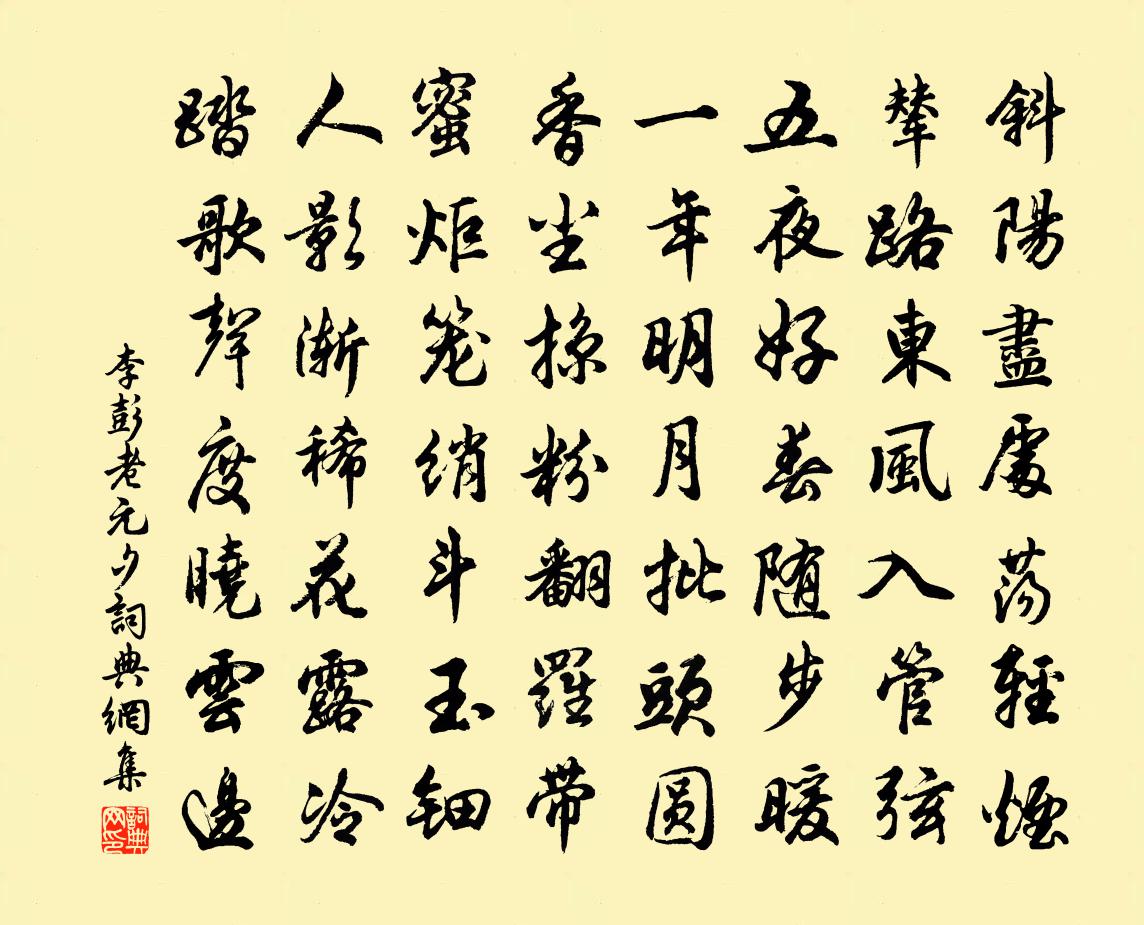 斜陽盡處蕩輕煙
輦路東風入管弦
五夜好春随步暖
一年明月批頭圓
香尘掠粉翻羅帶
蜜炬笼绡斗玉钿
人影漸稀花露冷
踏歌聲度曉雲邊
李彭老元夕詞典網集
詞典网印